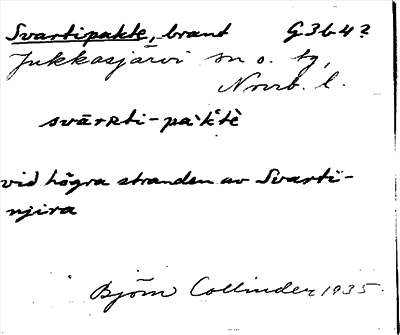 Svartipakte, brant G3b4?
Jukkasjärvi sn o. tg,
Norrb. l.
svārʀti-pàk̀tè
vid högra stranden av Svarti-
njira
Björn Collinder 1935.